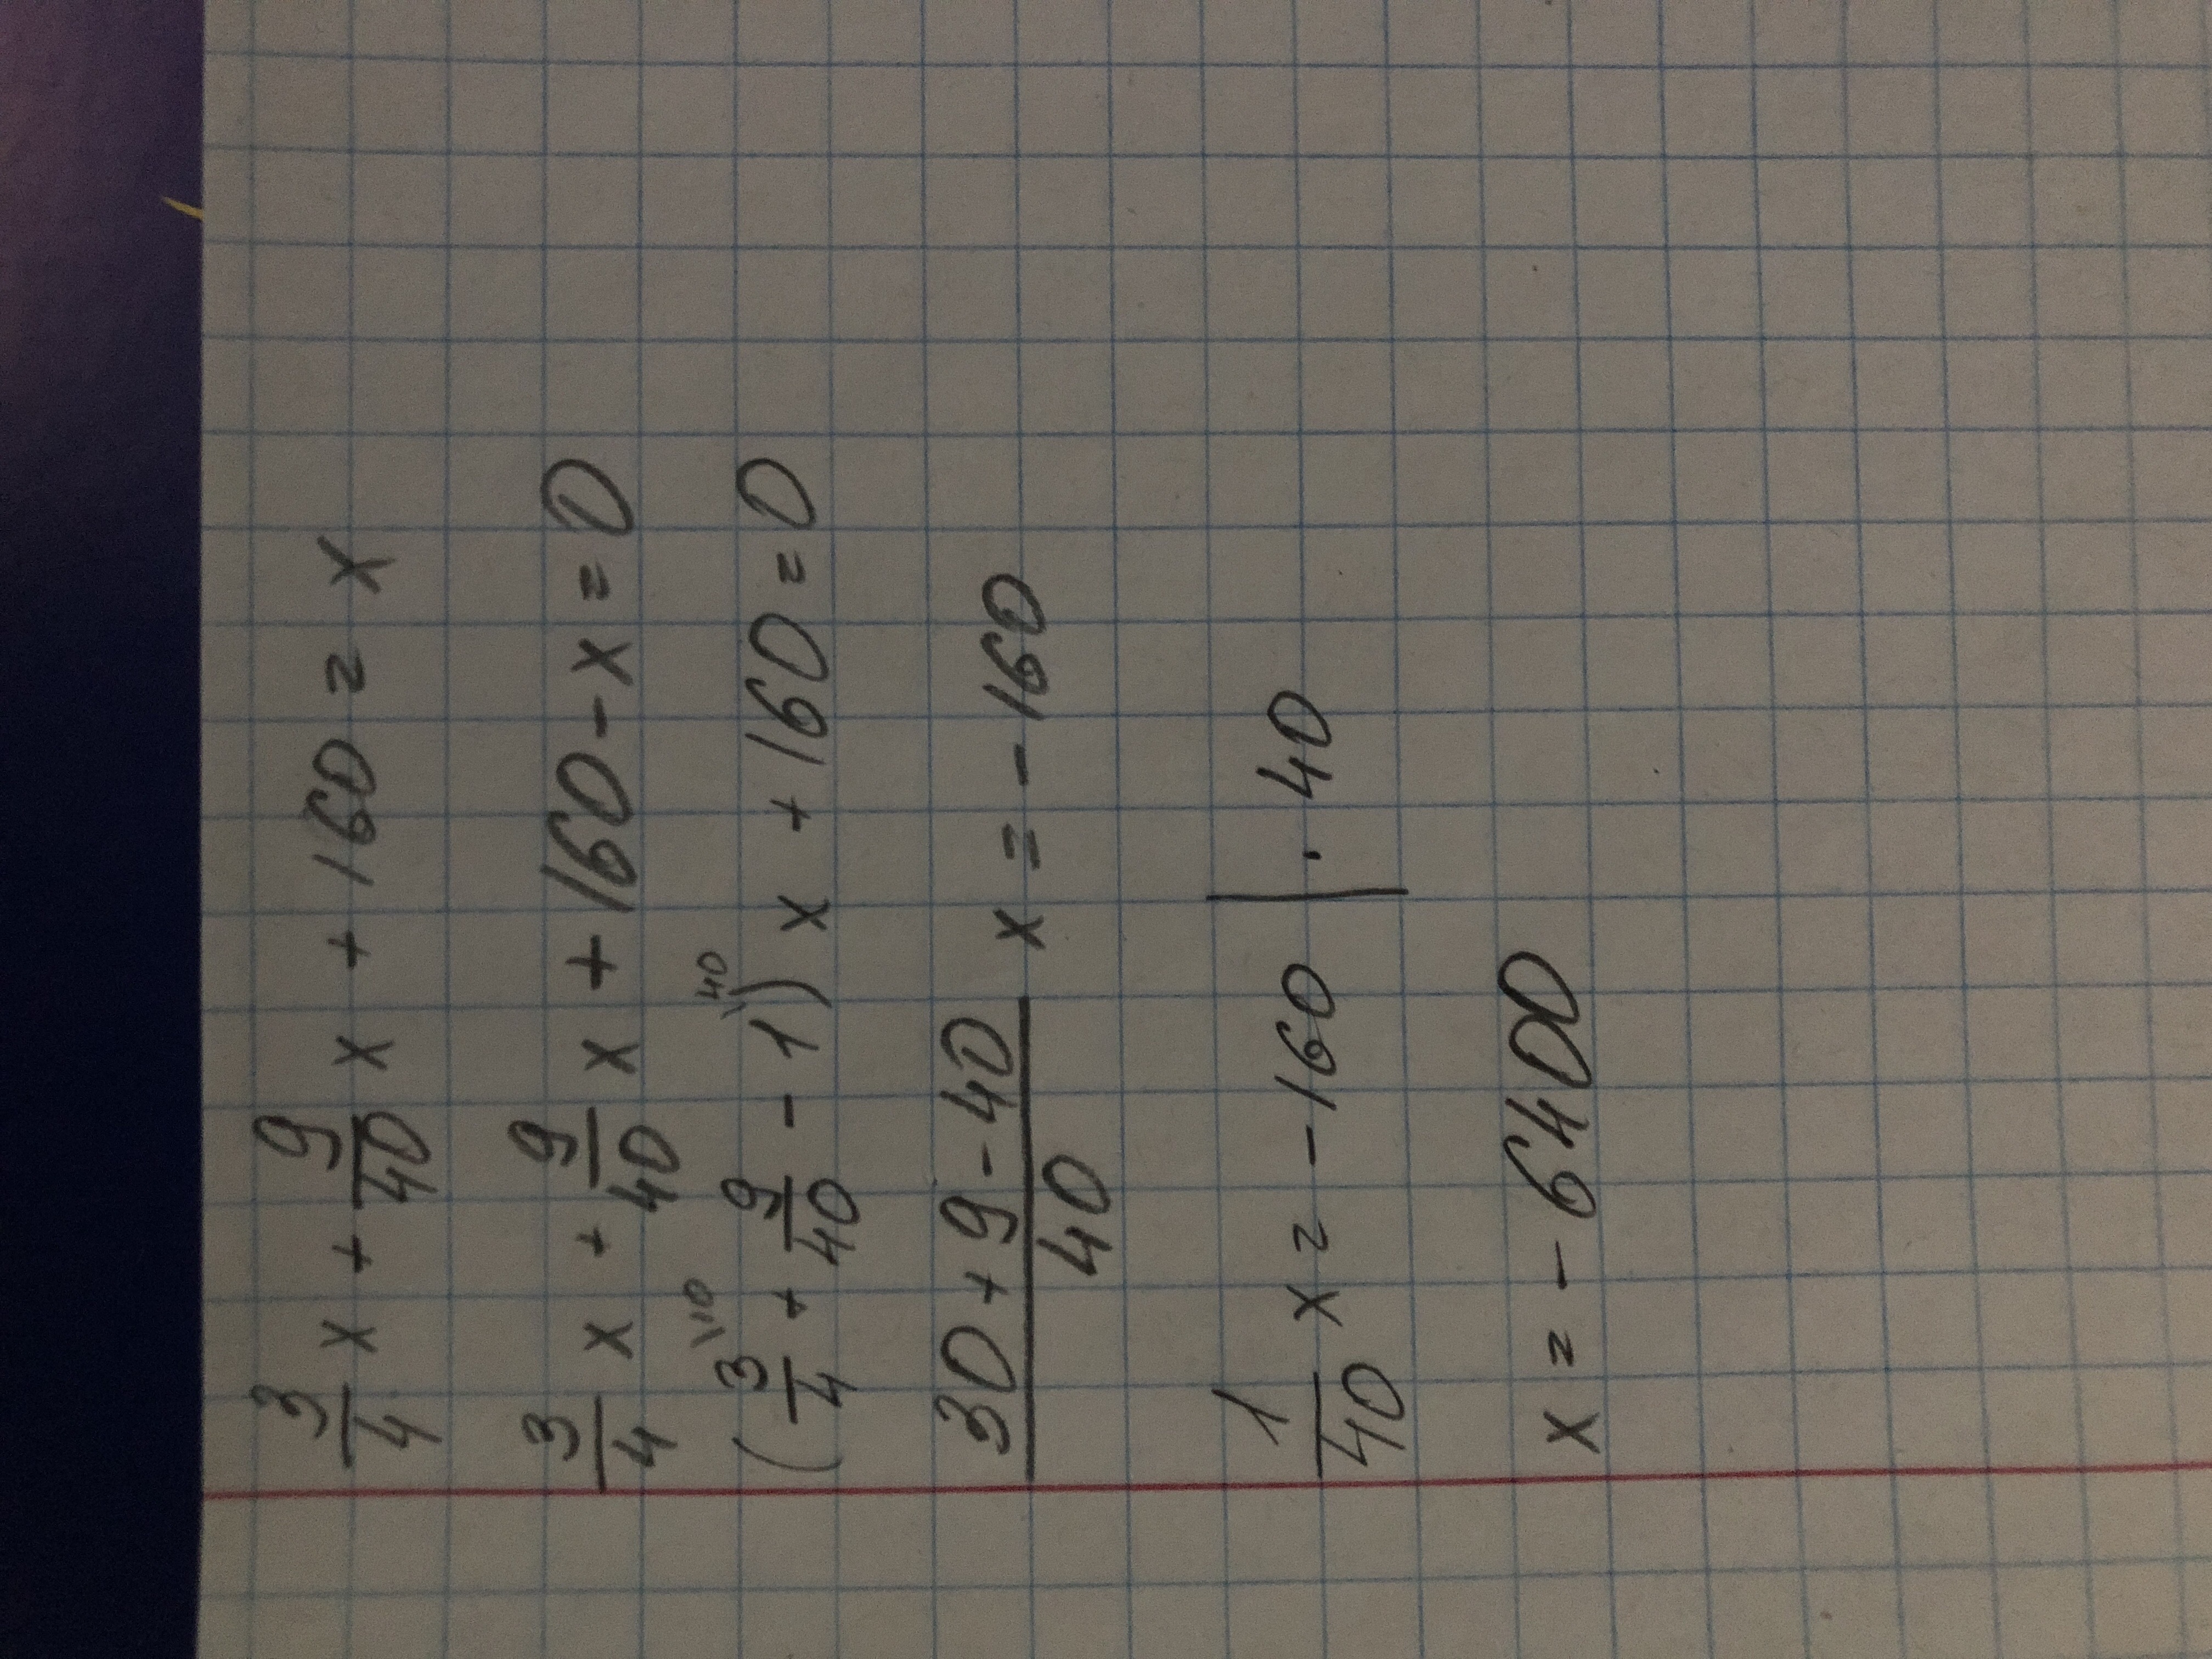 3/4 x + 9/40 x + 160 = x
3/4 x + 9/40 x + 160 - x = 0
(3/4 \10 + 9/40 - 1 \40) x + 160 = 0
30 + 9 - 40 / 40 x = - 160
1/40 x = - 160 | · 40
x = - 6400